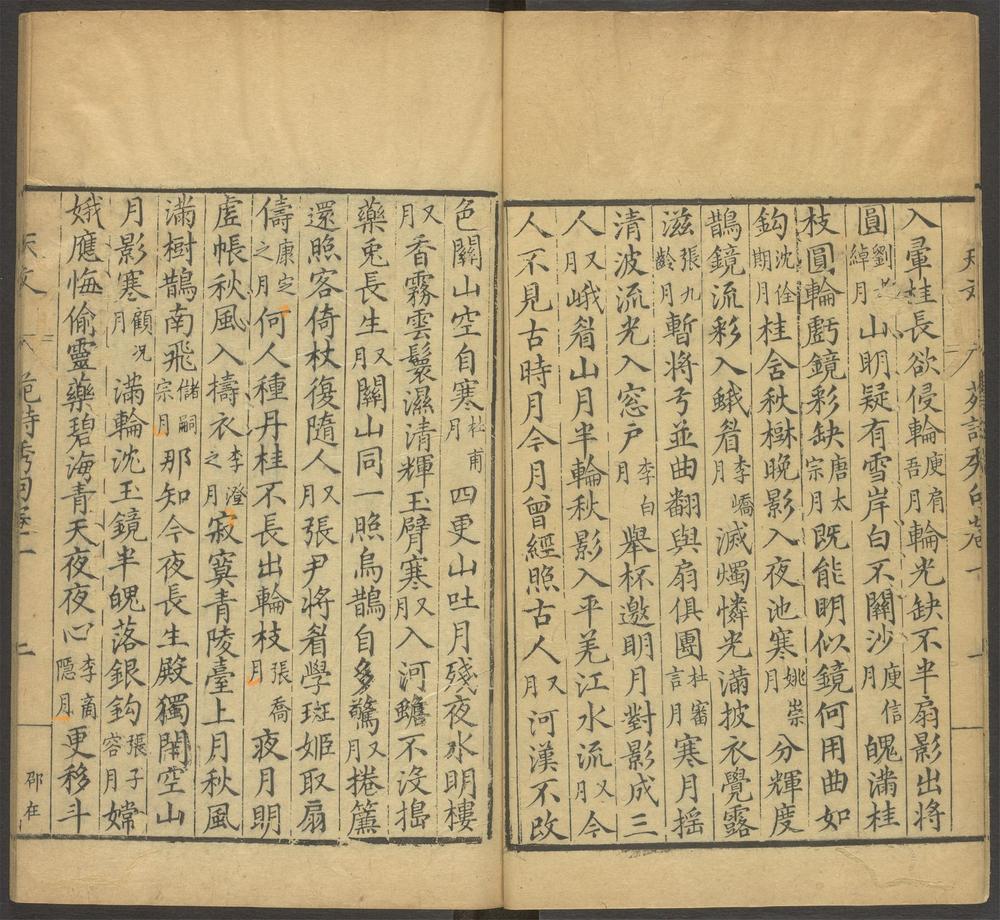 入暈桂長欲侵輪庾肩吾月輪光缺不半扇影出將
圓劉孝綽月山明疑有雪岸白不關沙庾信月魄滿桂
枝圓輪虧鏡彩缺唐太宗月既能明似鏡何用曲如
鈎沈佺期月桂含秋樹晚影入夜池寒姚崇月分輝度
鵲鏡流彩入蛾眉李嶠月滅燭憐光滿披衣覺露
滋張九齡月暫將弓並曲翻與扇俱團杜審言月寒月搖
清波流光入窓户李白月舉杯邀明月對影成三
人又月峨眉山月半輪秋影入平羌江水流又月今
人不見古時月今月曾經照古人又月河漢不改
色關山空自寒杜甫月四更山吐月殘夜水明樓
又月香霧雲鬟濕清輝玉臂寒又月入河蟾不沒搗
藥兎長生又月關山同一照烏鵲自多驚又月捲簾
還照客倚杖復隨人又月張尹將眉學班姬取扇
儔康定之月何人種丹桂不長出輪枝張喬月夜月明
虛帳秋風入擣衣李澄之月寂寞青陵臺上月秋風
滿樹鵲南飛儲嗣宗月那知今夜長生殿獨閉空山
月影寒顧况月滿輪沈玉鏡半魄落銀鈎張子容月嫦
娥應悔偷靈藥碧海青天夜夜心李商隱月更移斗
天文
苑詩秀句卷一
二
邵在